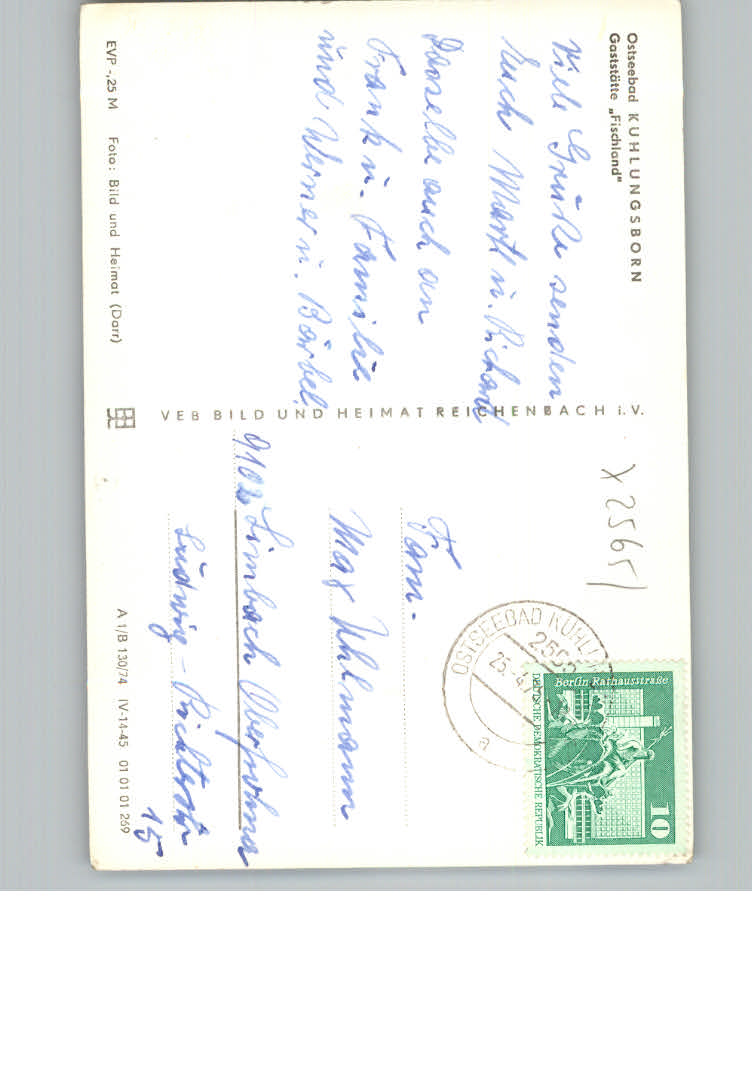 Ostseebad KÜHLUNGSBORN
Gaststätte „Fischland"
Viele Grüße senden
Euch Martl u. Richard
Dasselbe auch an
Frank u. Familie
und Werner u. Bärbel.
EVP -,25 M Foto: Bild und Heimat (Darr)
VEB BILD UND HEIMAT REICHENBACH i. V.
X 2565/
OSTSEEBAD KÜHLUN
25.-4.7
a
Berlin-Rathausstraße
DEUTSCHE DEMOKRATISCHE REPUBLIK
10
Fam.
Max Uhlmann
9102 Limbach Oberfrohna
Ludwig-Richterstr
15
A 1/B 130/74 IV-14-45 01 01 01 269